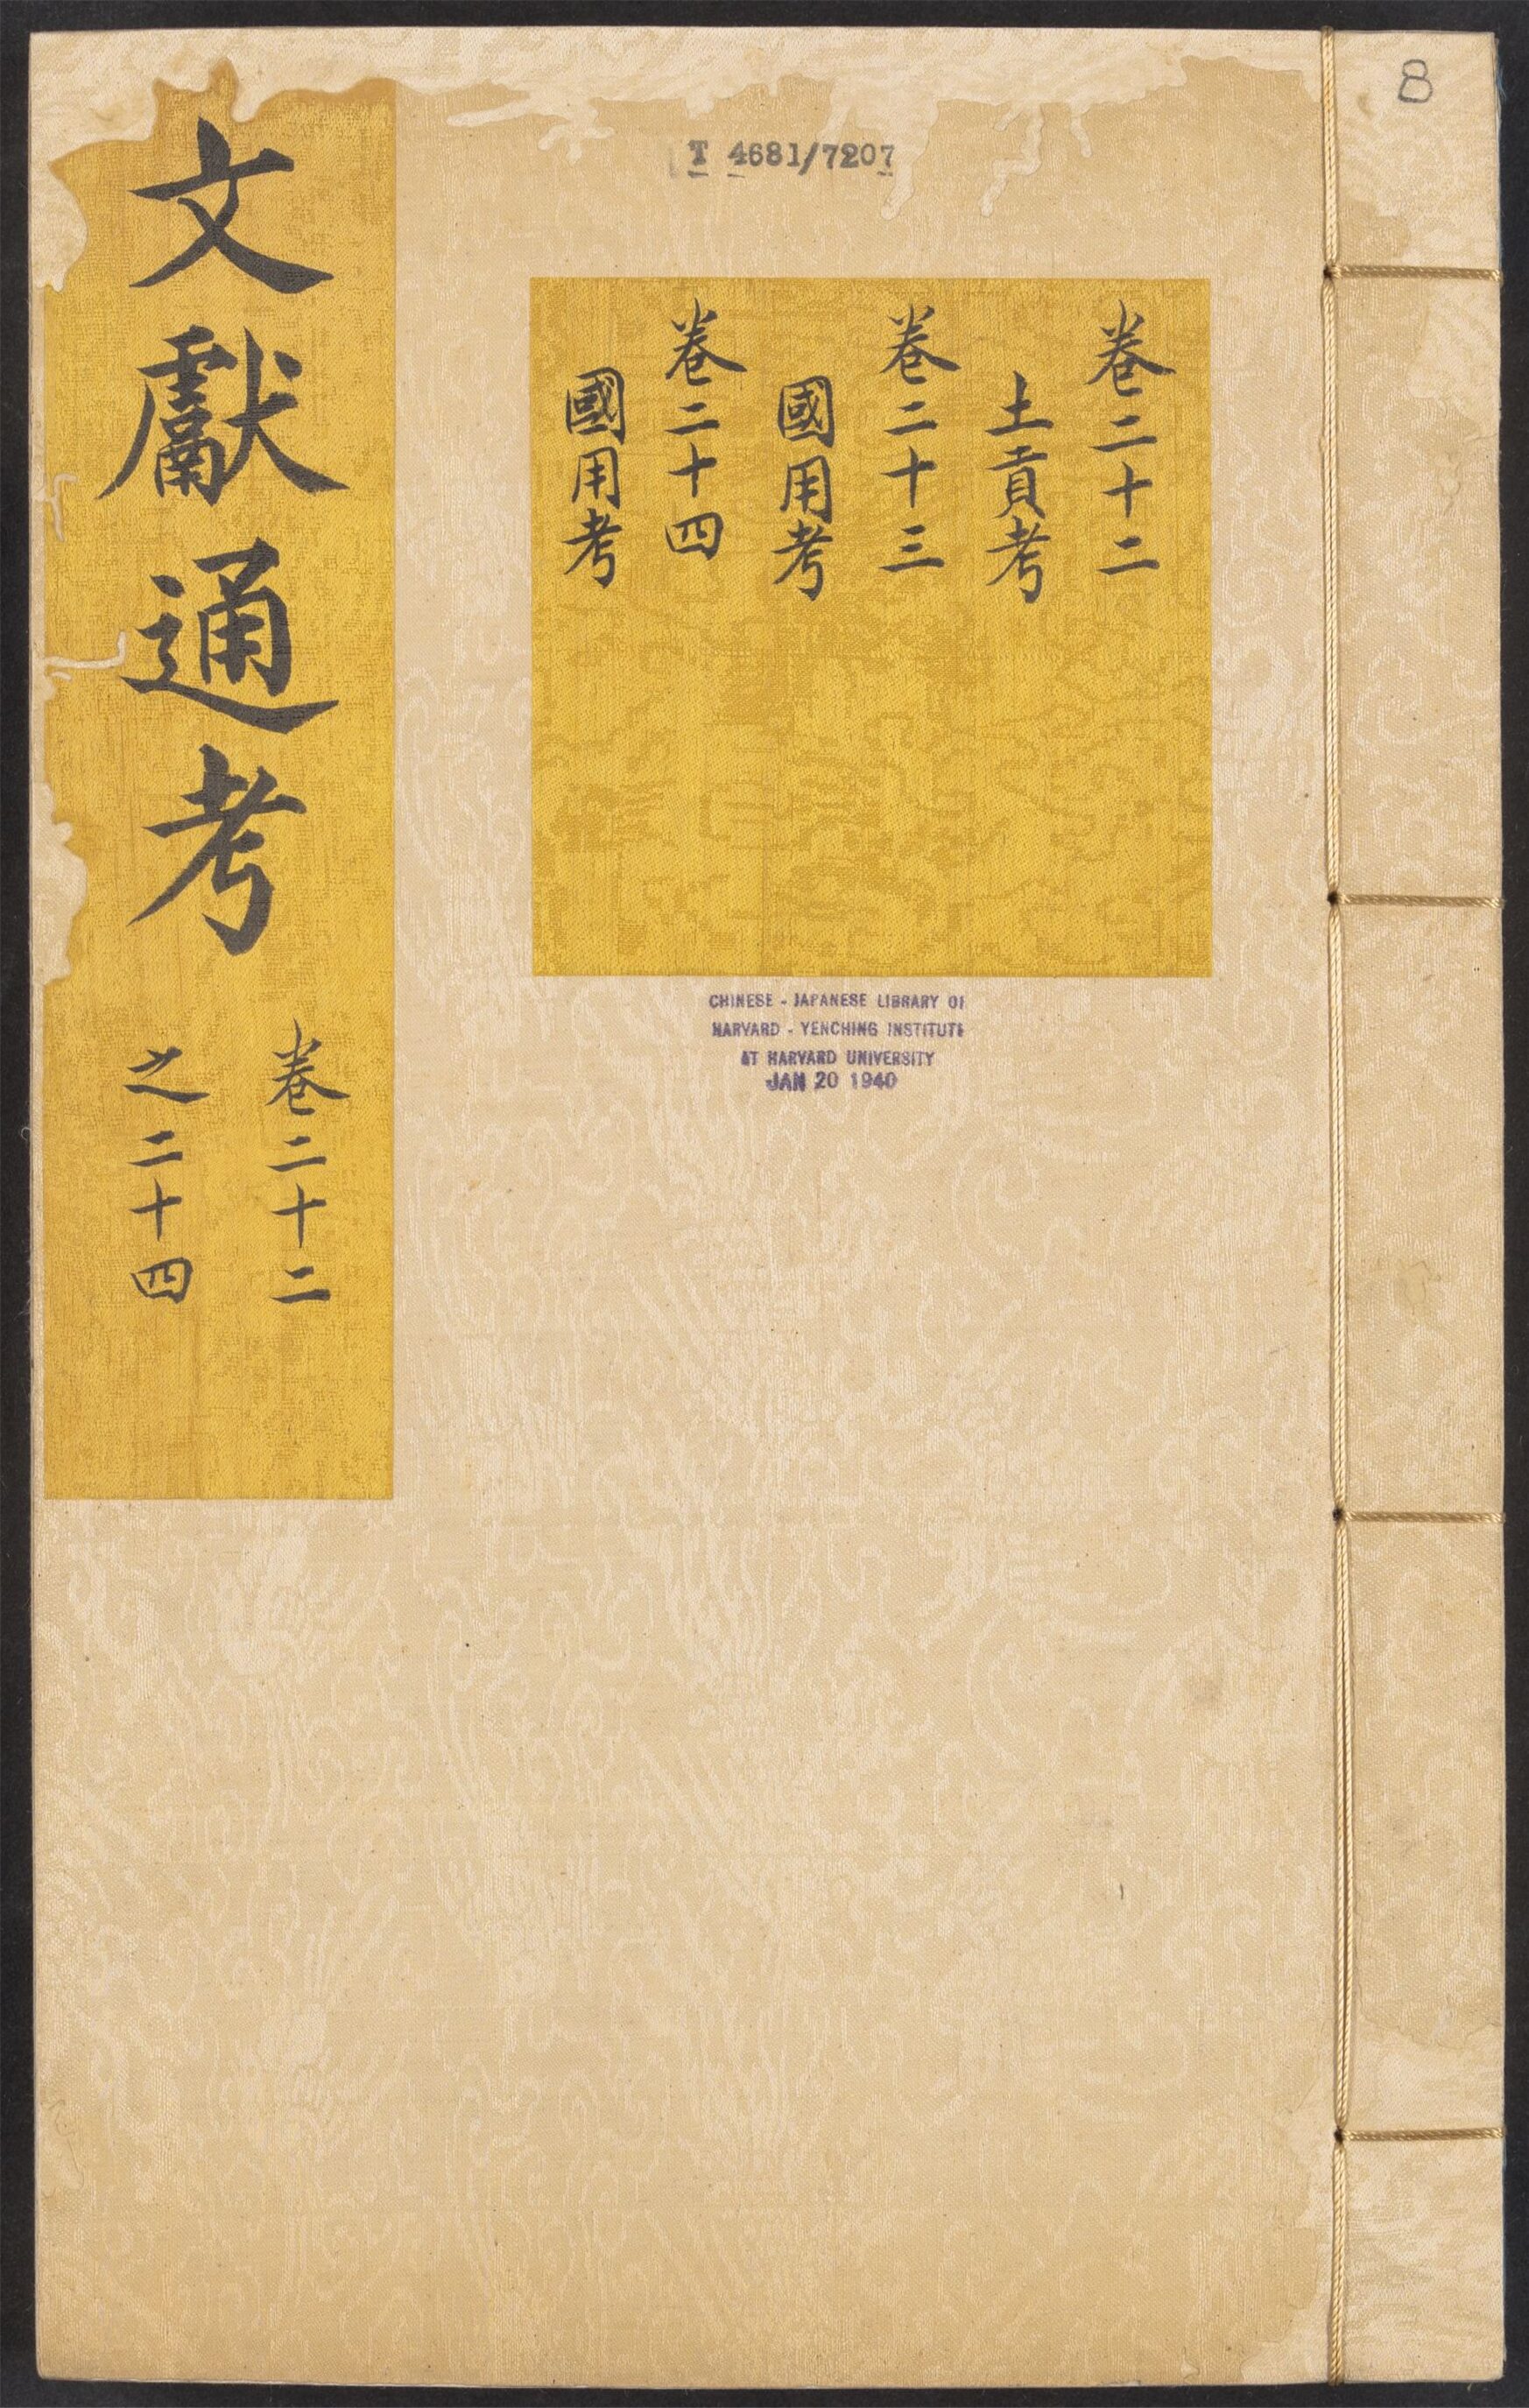 8
T 4681/7207
卷二十二
土貢考
卷二十三
國用考
卷二十四
國用考
文獻通考
卷二十二
之二十四
CHINESE - JAPANESE LIBRARY OF
HARVARD - YENCHING INSTITUTE
AT HARVARD UNIVERSITY
JAN 20 1940